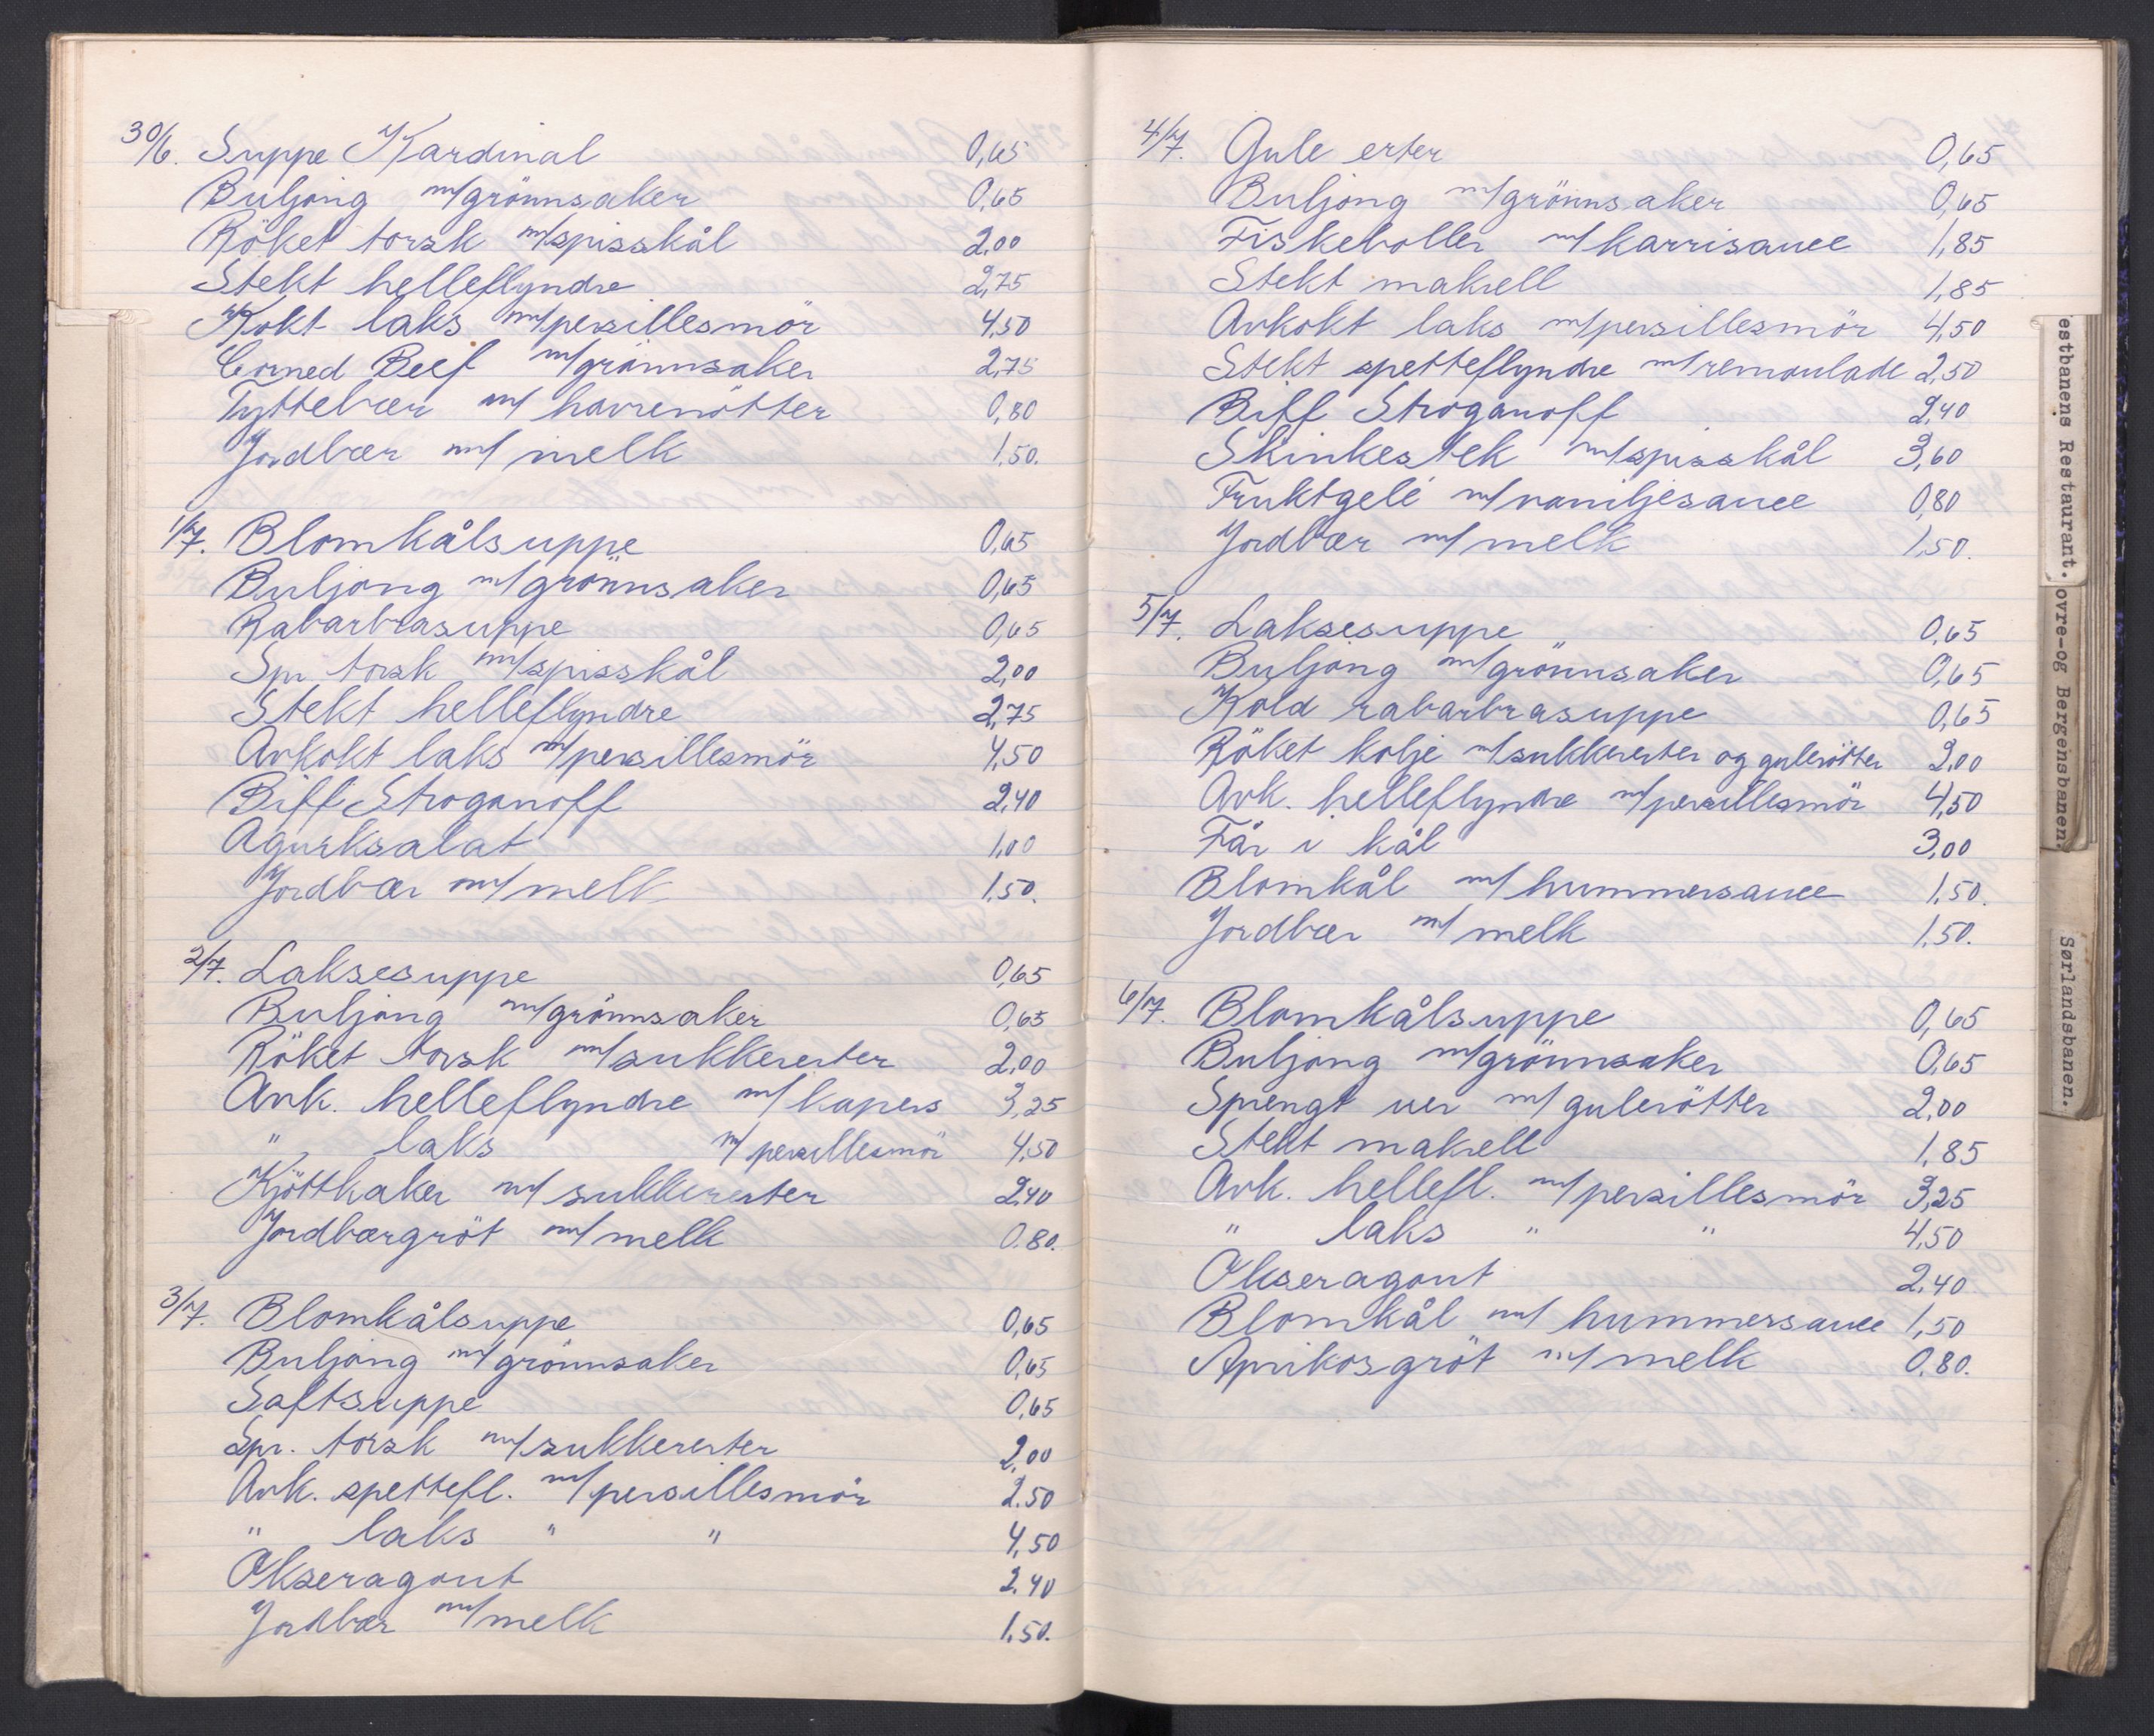 30/6. Suppe Kardinal 0,65
Buljong m/grönnsaker 0,65
Röket torsk m/spisskål 2,00
Stekt helleflyndre 2,75
Kokt laks m/persillesmör 4,50
Corned Beef m/grönnsaker 2,75
Tyttebær m/ havrenötter 0,80
Jordbær m/ melk 1.50.
1/7. Blomkålsuppe 0,65
Buljong m/grönnsaker 0,65
Rabarbrasuppe 0,65
Spr. torsk m/spisskål 2,00
Stekt helleflyndre 2,75
Avkokt laks m/persillesmör 4,50
Biff Stroganoff 2,40
Agurksalat 1,00
Jordbær m/melk 1,50.
2/7. Laksesuppe 0,65
Buljong m/grönnsaker 0,65
Röket torsk m/sukkererter 2,00
Avk. helleflyndre m/kapers 3,25
" laks m/ persillesmör 4,50
Kjöttkaker m/ sukkererter 2,40
Jordbærgröt m/melk 0.80.
3/7. Blomkålsuppe 0,65
Buljong m/grönnsaker 0,65
Saftsuppe 0,65
Spr. torsk m/sukkererter 2,00
Avk. spettefl. m/persillesmör 2.50
" laks " " 4,50
Okseragout 2.40
Jordbær m/melk 1.50.
4/7. Gule erter 0,65
Buljong m/grönnsaker 0,65
Fiskeboller m/karrisauce 1,85
Stekt makrell 1,85
Avkokt laks m/persillesmör 4,50
Stekt spetteflyndre m/remoulade 2,50
Biff Stroganoff 2,40
Skinkestek m/spisskål 3,60
Fruktgelé m/vaniljesauce 0,80
Jordbær m/melk 1,50.
5/7. Laksesuppe 0,65
Buljong m/grönnsaker 0,65
Kold rabarbrasuppe 0,65
Röket kolje m/sukkererter og gulerötter 2,00
Avk. helleflyndre m/persillesmör 4,50
Får i kål 3,00
Blomkål m/ hummersauce 1,50.
Jordbær m/ melk 1.50.
6/7. Blomkålsuppe 0,65
Buljong m/grönnsaker 0,65
Sprengt uer m/ gulerötter 2,00
Stekt makrell 1,85
Avk. hellefl. m/persillesmör 3,25
" laks " " 4,50
Okseragout 2,40
Blomkål m/ hummersauce 1,50
Aprikosgröt m/melk 0,80.
estbanens Restaurant.
ovre-og Bergensbanen.
Sørlandsbanen.